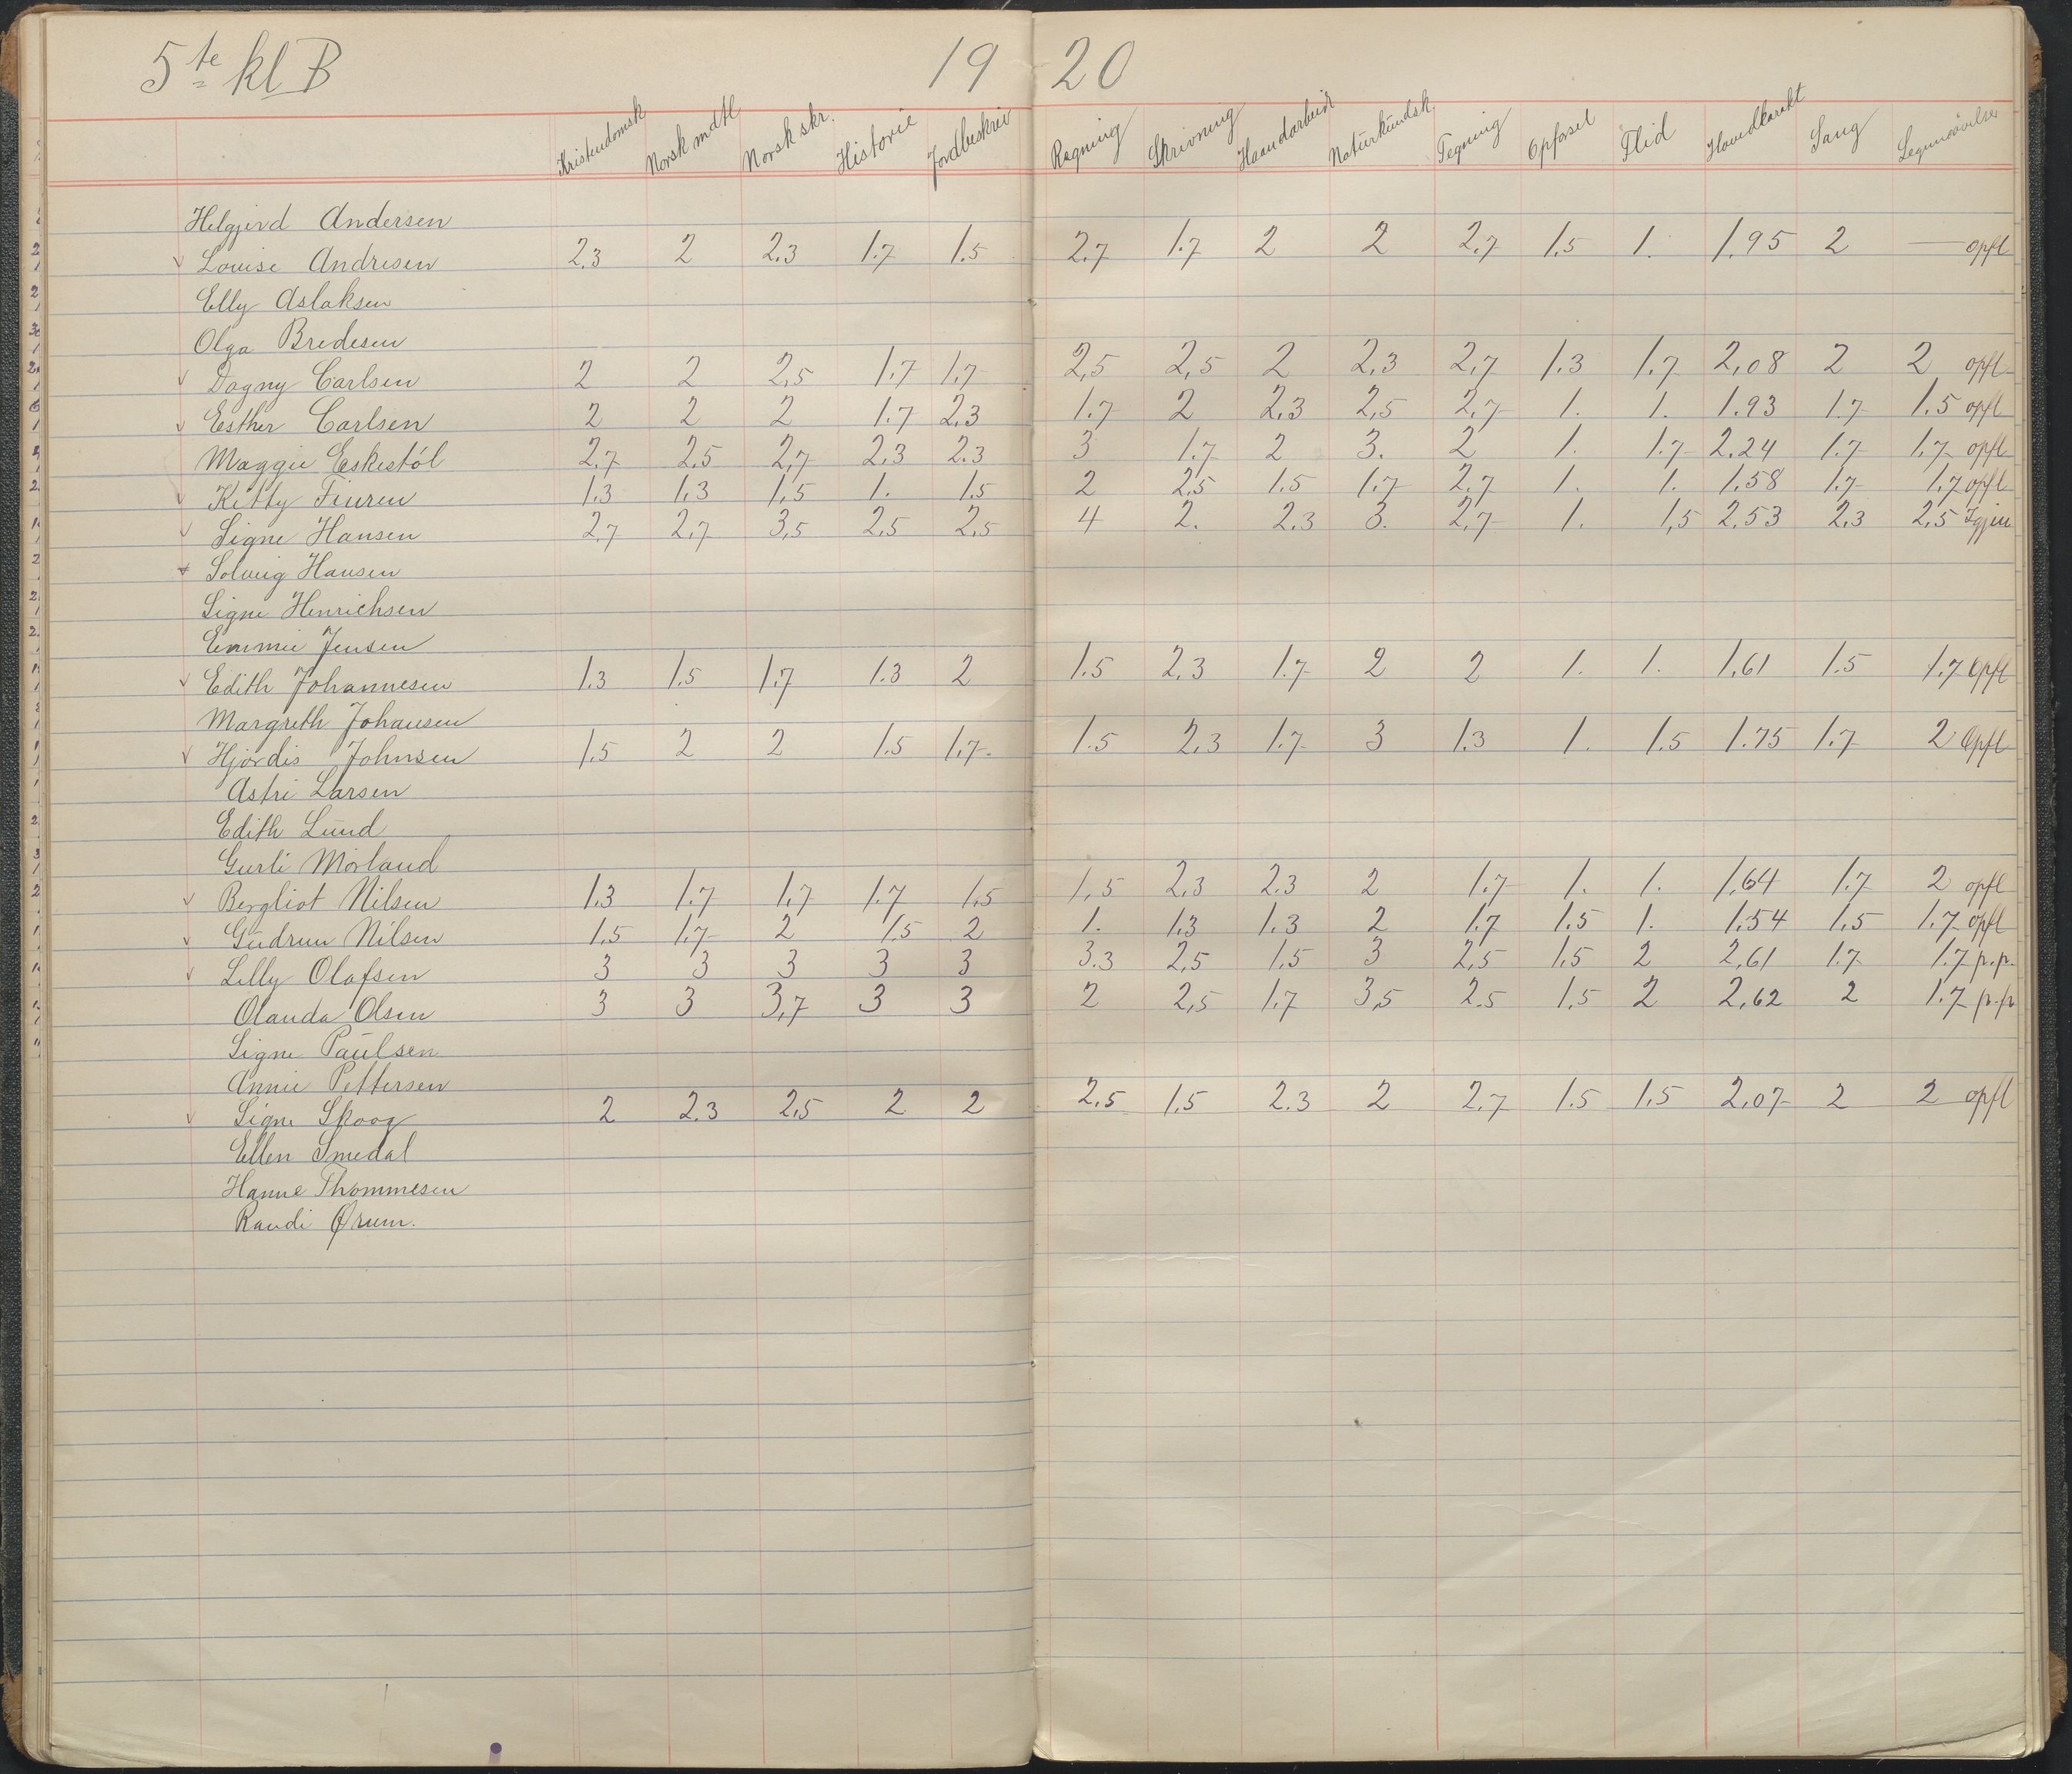 5te kl B 19 20
Kristendomsk Norsk mdtl Norsk skr. Historie Jordbeskriv Regning Skrivning Haandarbeide Naturkundsk. Tegning Opførsel Flid Hovedkarakt Sang Legemsøvelse
Helgjerd Andersen
Louise Andresen 2.3 2 2.3 1.7 1.5 2.7 1.7 2 2 2.7 1.5 1. 1.95 2 — opfl
Elly Aslaksen
Olga Bredesen
Dagny Carlsen 2 2 2,5 1.7 1.7 2,5 2,5 2 2,3 2,7 1.3 1.7 2,08 2 2 opfl
Esther Carlsen 2 2 2 1.7 2.3 1.7 2 2.3 2,5 2,7 1. 1. 1.93 1.7 1.5 opfl
Maggie Eskestøl 2.7 2.5 2,7 2.3 2.3 3 1.7 2 3. 2 1. 1.7 2.24 1.7 1.7 opfl
Kitty Fiuren 1.3 1,3 1,5 1. 1.5 2 2.5 1.5 1.7 2.7 1. 1. 1.58 1.7 1.7 opfl
Signe Hansen 2,7 2,7 3,5 2.5 2.5 4 2. 2.3 3. 2,7 1. 1,5 2.53 2.3 2,5 Igjen
Solveig Hansen
Signe Henrichsen
Emmie Jensen
Edith Johannesen 1.3 1.5 1.7 1.3 2 1.5 2.3 1.7 2 2 1. 1. 1,61 1.5 1.7 Opfl
Margreth Johansen
Hjørdis Johnsen 1.5 2 2 1.5 1.7. 1.5 2.3 1.7 3 1.3 1. 1.5 1.75 1.7 2 Opfl
Astri Larsen
Edith Lund
Gurli Mørland
Bergliot Nilsen 1.3 1.7 1,7 1.7 1,5 1,5 2.3 2.3 2 1.7 1. 1. 1,64 1.7 2 opfl
Gudrun Nilsen 1.5 1.7 2 1.5 2 1. 1.3 1.3 2 1.7 1.5 1. 1.54 1,5 1.7 opfl
Lilly Olafsen 3 3 3 3 3 3.3 2,5 1.5 3 2,5 1.5 2 2,61 1.7 1.7 p.p.
Olanda Olsen 3 3 3,7 3 3 2 2,5 1.7 3,5 2.5 1.5 2 2,62 2 1.7 p.p
Signe Paulsen
Annie Pettersen
Signe Skoog 2 2.3 2,5 2 2 2.5 1.5 2.3 2 2.7 1.5 1.5 2.07 2 2 opfl
Ellen Smedal
Hanne Thommesen
Randi Ørum.